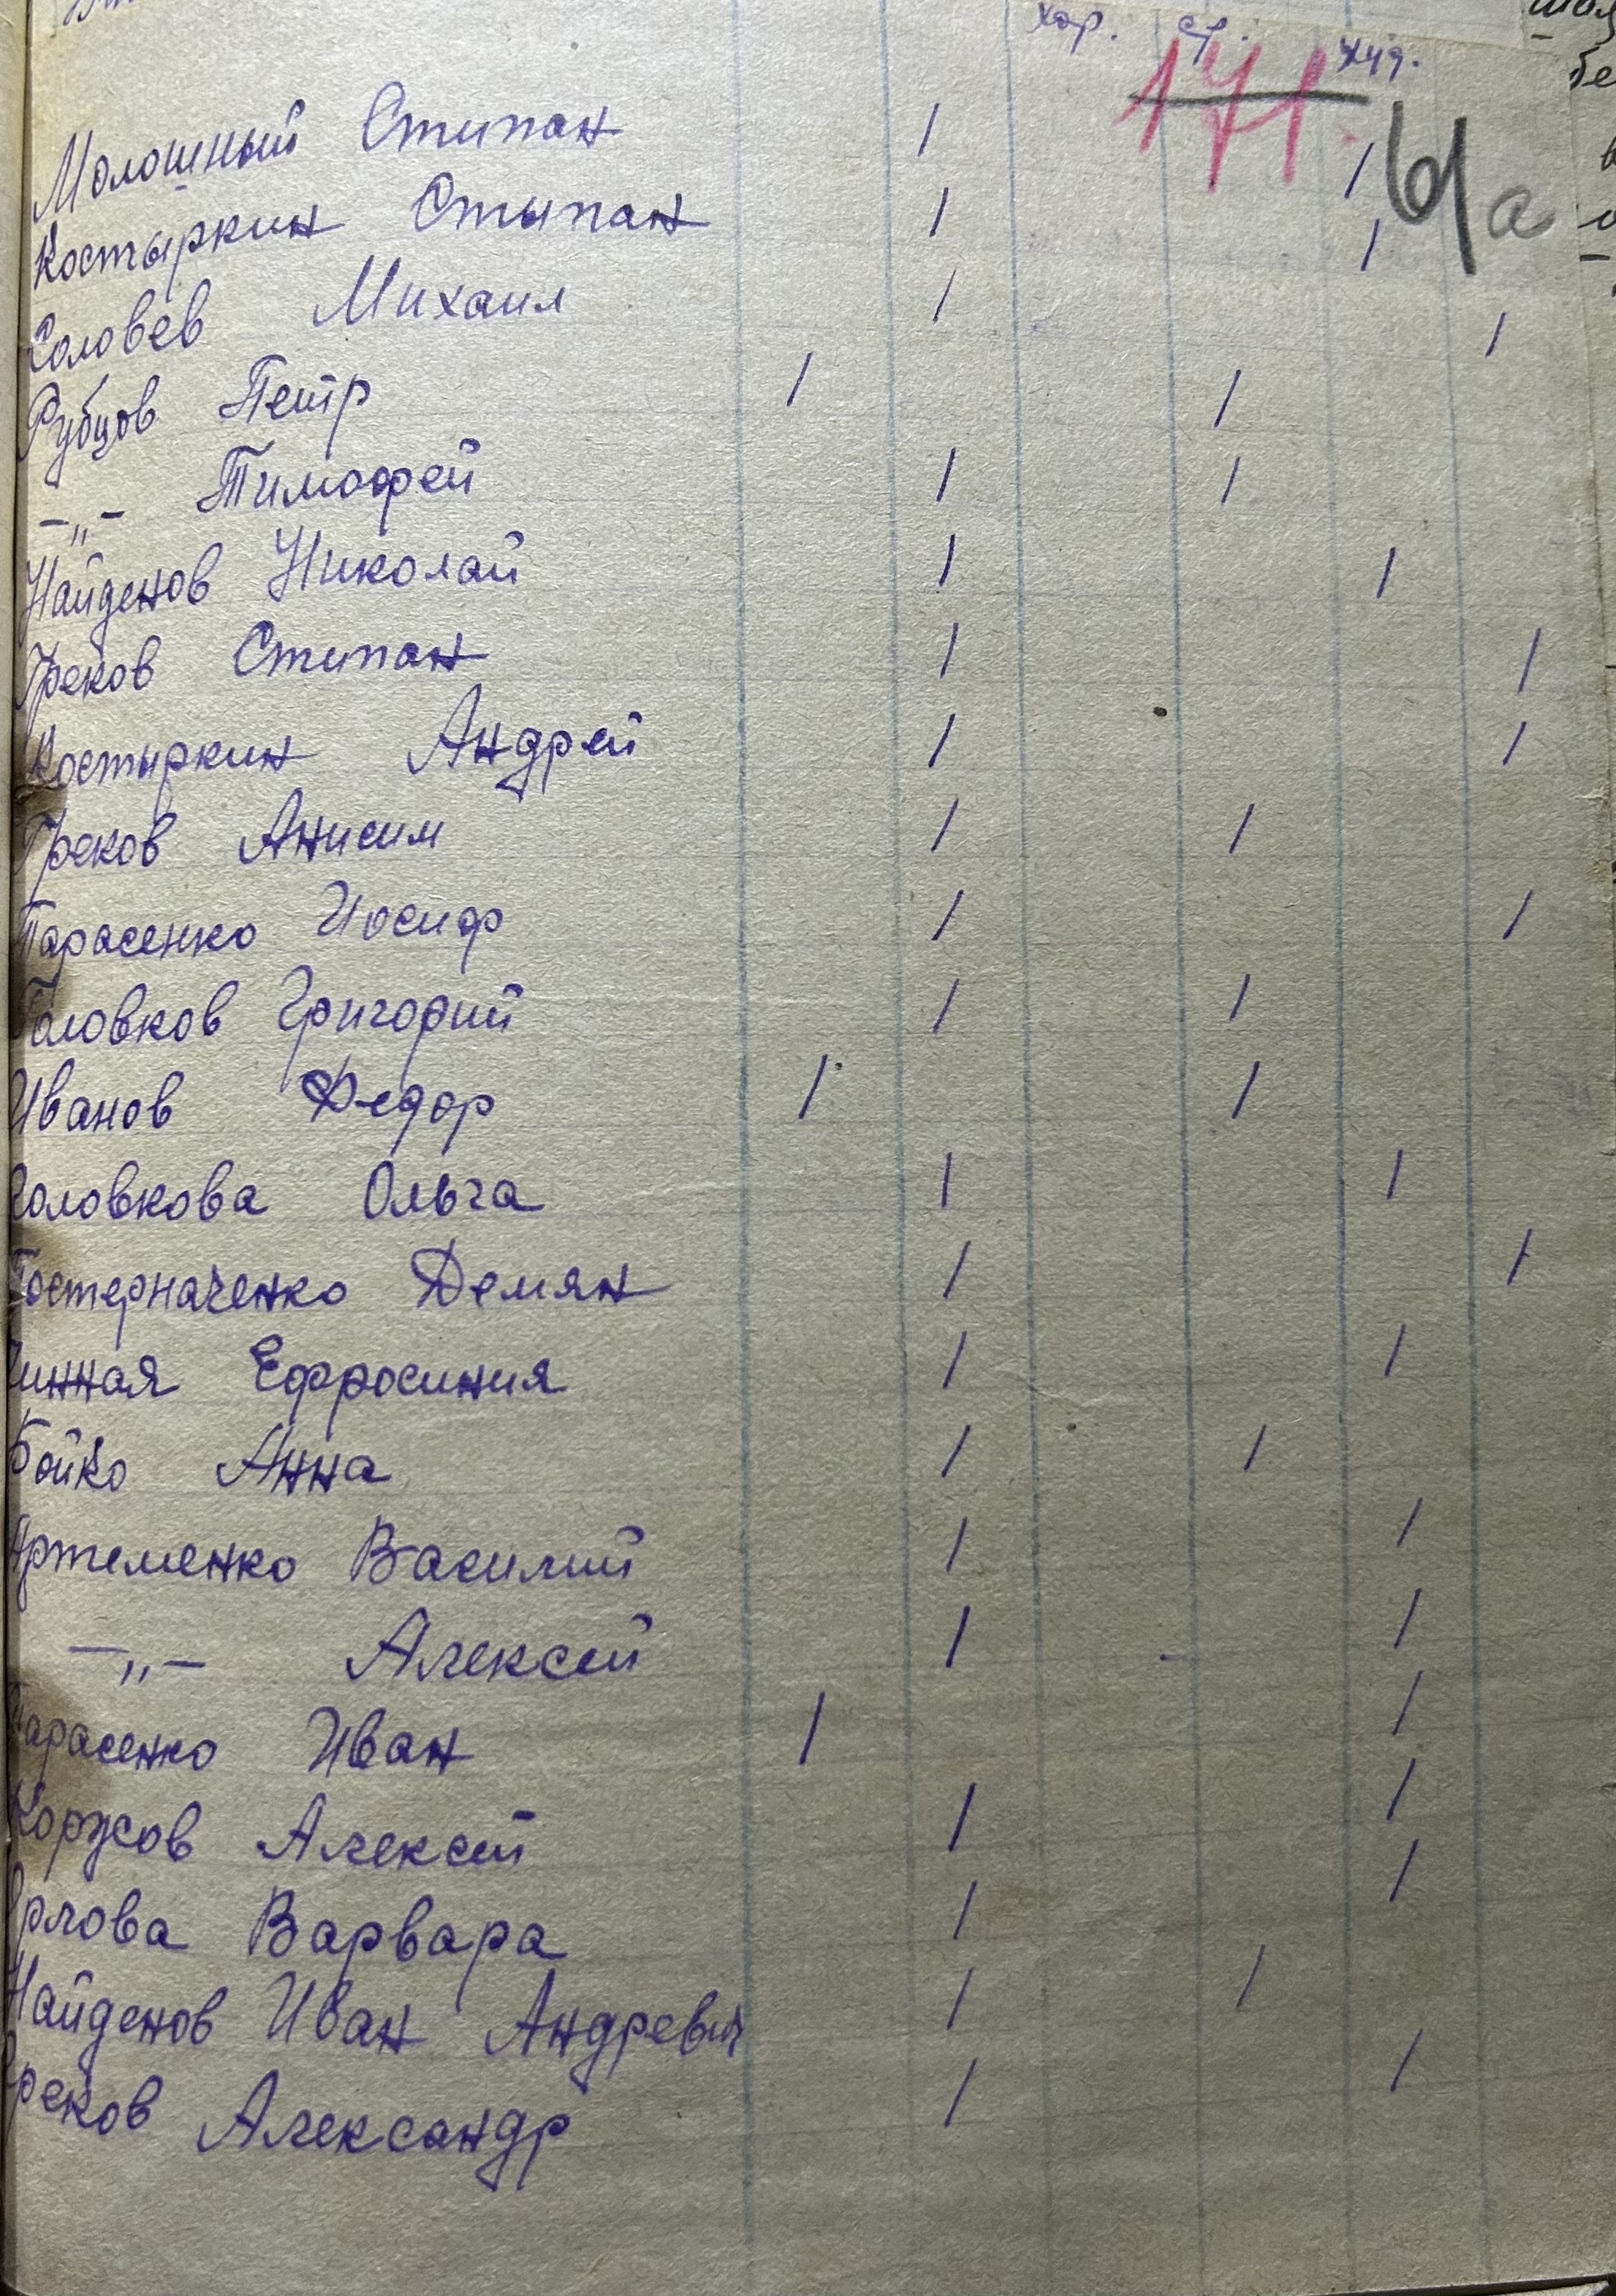 хор. ср. худ.
171
61а
Молошный Стипан / /
Костыркин Стыпан / /
Соловев Михаил / /
Рубцов Петр / /
–„– Тимофей / /
Найденов Николай / /
Греков Стипан / /
Костыркин Андрей / /
Греков Анисим / /
Тарасенко Иосиф / /
Головков Григорий / /
Иванов Федор / /
Головкова Ольга / /
Постерначенко Демян / /
Ефросиния / /
Бойко Анна / /
Артеменко Василий / /
–„– Алексей / /
Тарасенко Иван / /
Корусов Алексей / /
Орлова Варвара / /
Найденов Иван Андревич / /
Греков Александр / /